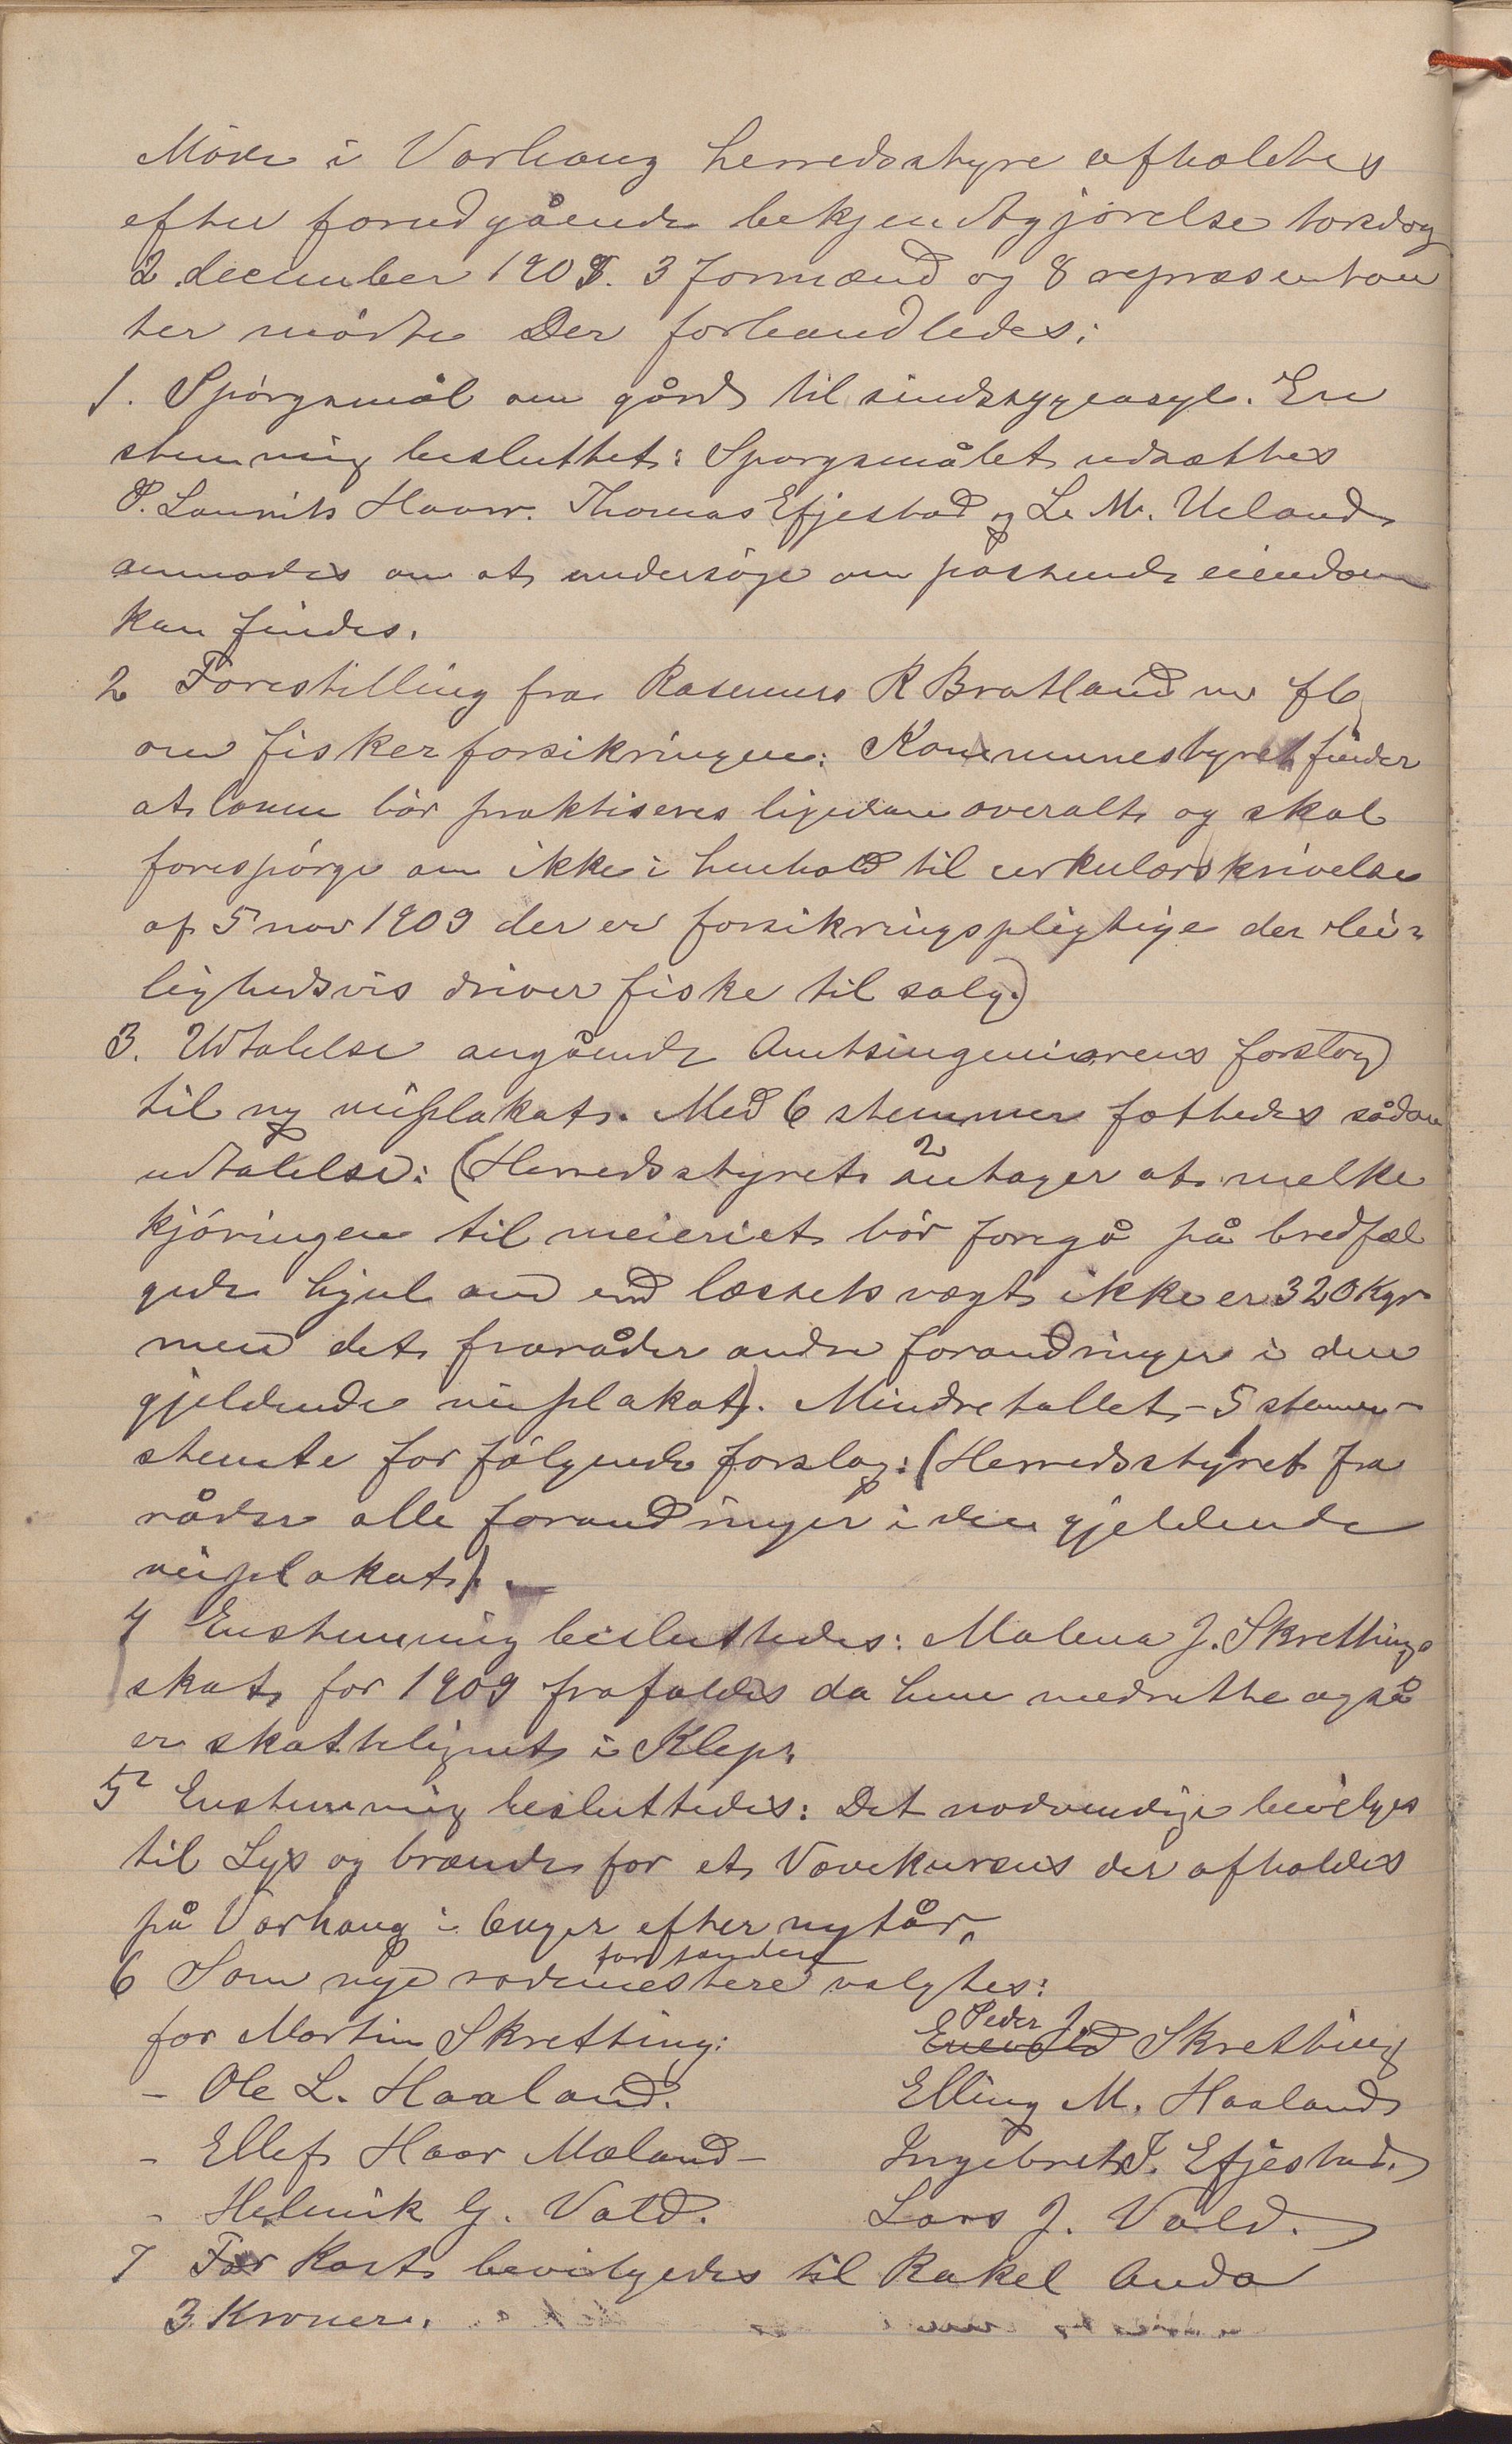 Möde i Varhaug herredsstyre afholdtes
efter forudgående bekjendtgjörelse torsdag
2 december 1909. 3 formænd og 8 repræsentan
ter mödte Der forhandledes:
1. Spörgsmål om gård til sindssygeasyl. En
stemmig besluttet: Spørgsmålet udsættes
P. Laurits Haarr. Thomas Efjestad og L. M. Ueland
anmodes om at undersöge om passende eiendom
kan findes.
2 Forestilling fra Rasmus R Bratland m fl
om fiskerforsikringen: Kommunestyret finder
at loven bör praktiseres ligedan overalt og skal
forespörge om ikke i henhold til cirkulærskrivelse
af 5 nov 1909 der er forsikringspligtige der lei=
lighedsvis driver fiske til salg.)
3. Udtalelse angående Amtsingeniørens forslag
til ny veiplakat. Med 6 stemmer fattedes sådan
udtalelse: (Herredsstyret antager at melke
kjöringen til meieriet bör foregå på bredfæl
gede hjul om end læssets vægt ikke er 320 Kgr
men det fraråder andre forandringer i den
gjeldende veiplakat). Mindretallet - 5 stemmer -
stemte for fölgende forslag: (Herredsstyret fra
råder alle forandringer i den gjeldende
veiplakat).
4 Enstemmig besluttedes: Malena J. Skrettings
skat for 1909 frafaldes da hun medrette også
er skattelignet i Klep.
5 Enstemmig besluttedes: Det nødvendige bevilges
til Lys og brænde for et Vævekursus der afholdes
på Varhaug i 6 uger efter nytår.
forstandere
6 Som nye rodemestere valgtes:
Peder J.
for Martin Skretting: Enevald Skretting
- Ole L. Haaland. Elling M. Haaland
- Ellef Haar Mæland - Ingebret T. Efjestad.
- Helmik G. Vold. Lars J. Vold.
7 For Kost bevilgedes til Rakel Anda
3 Kroner.